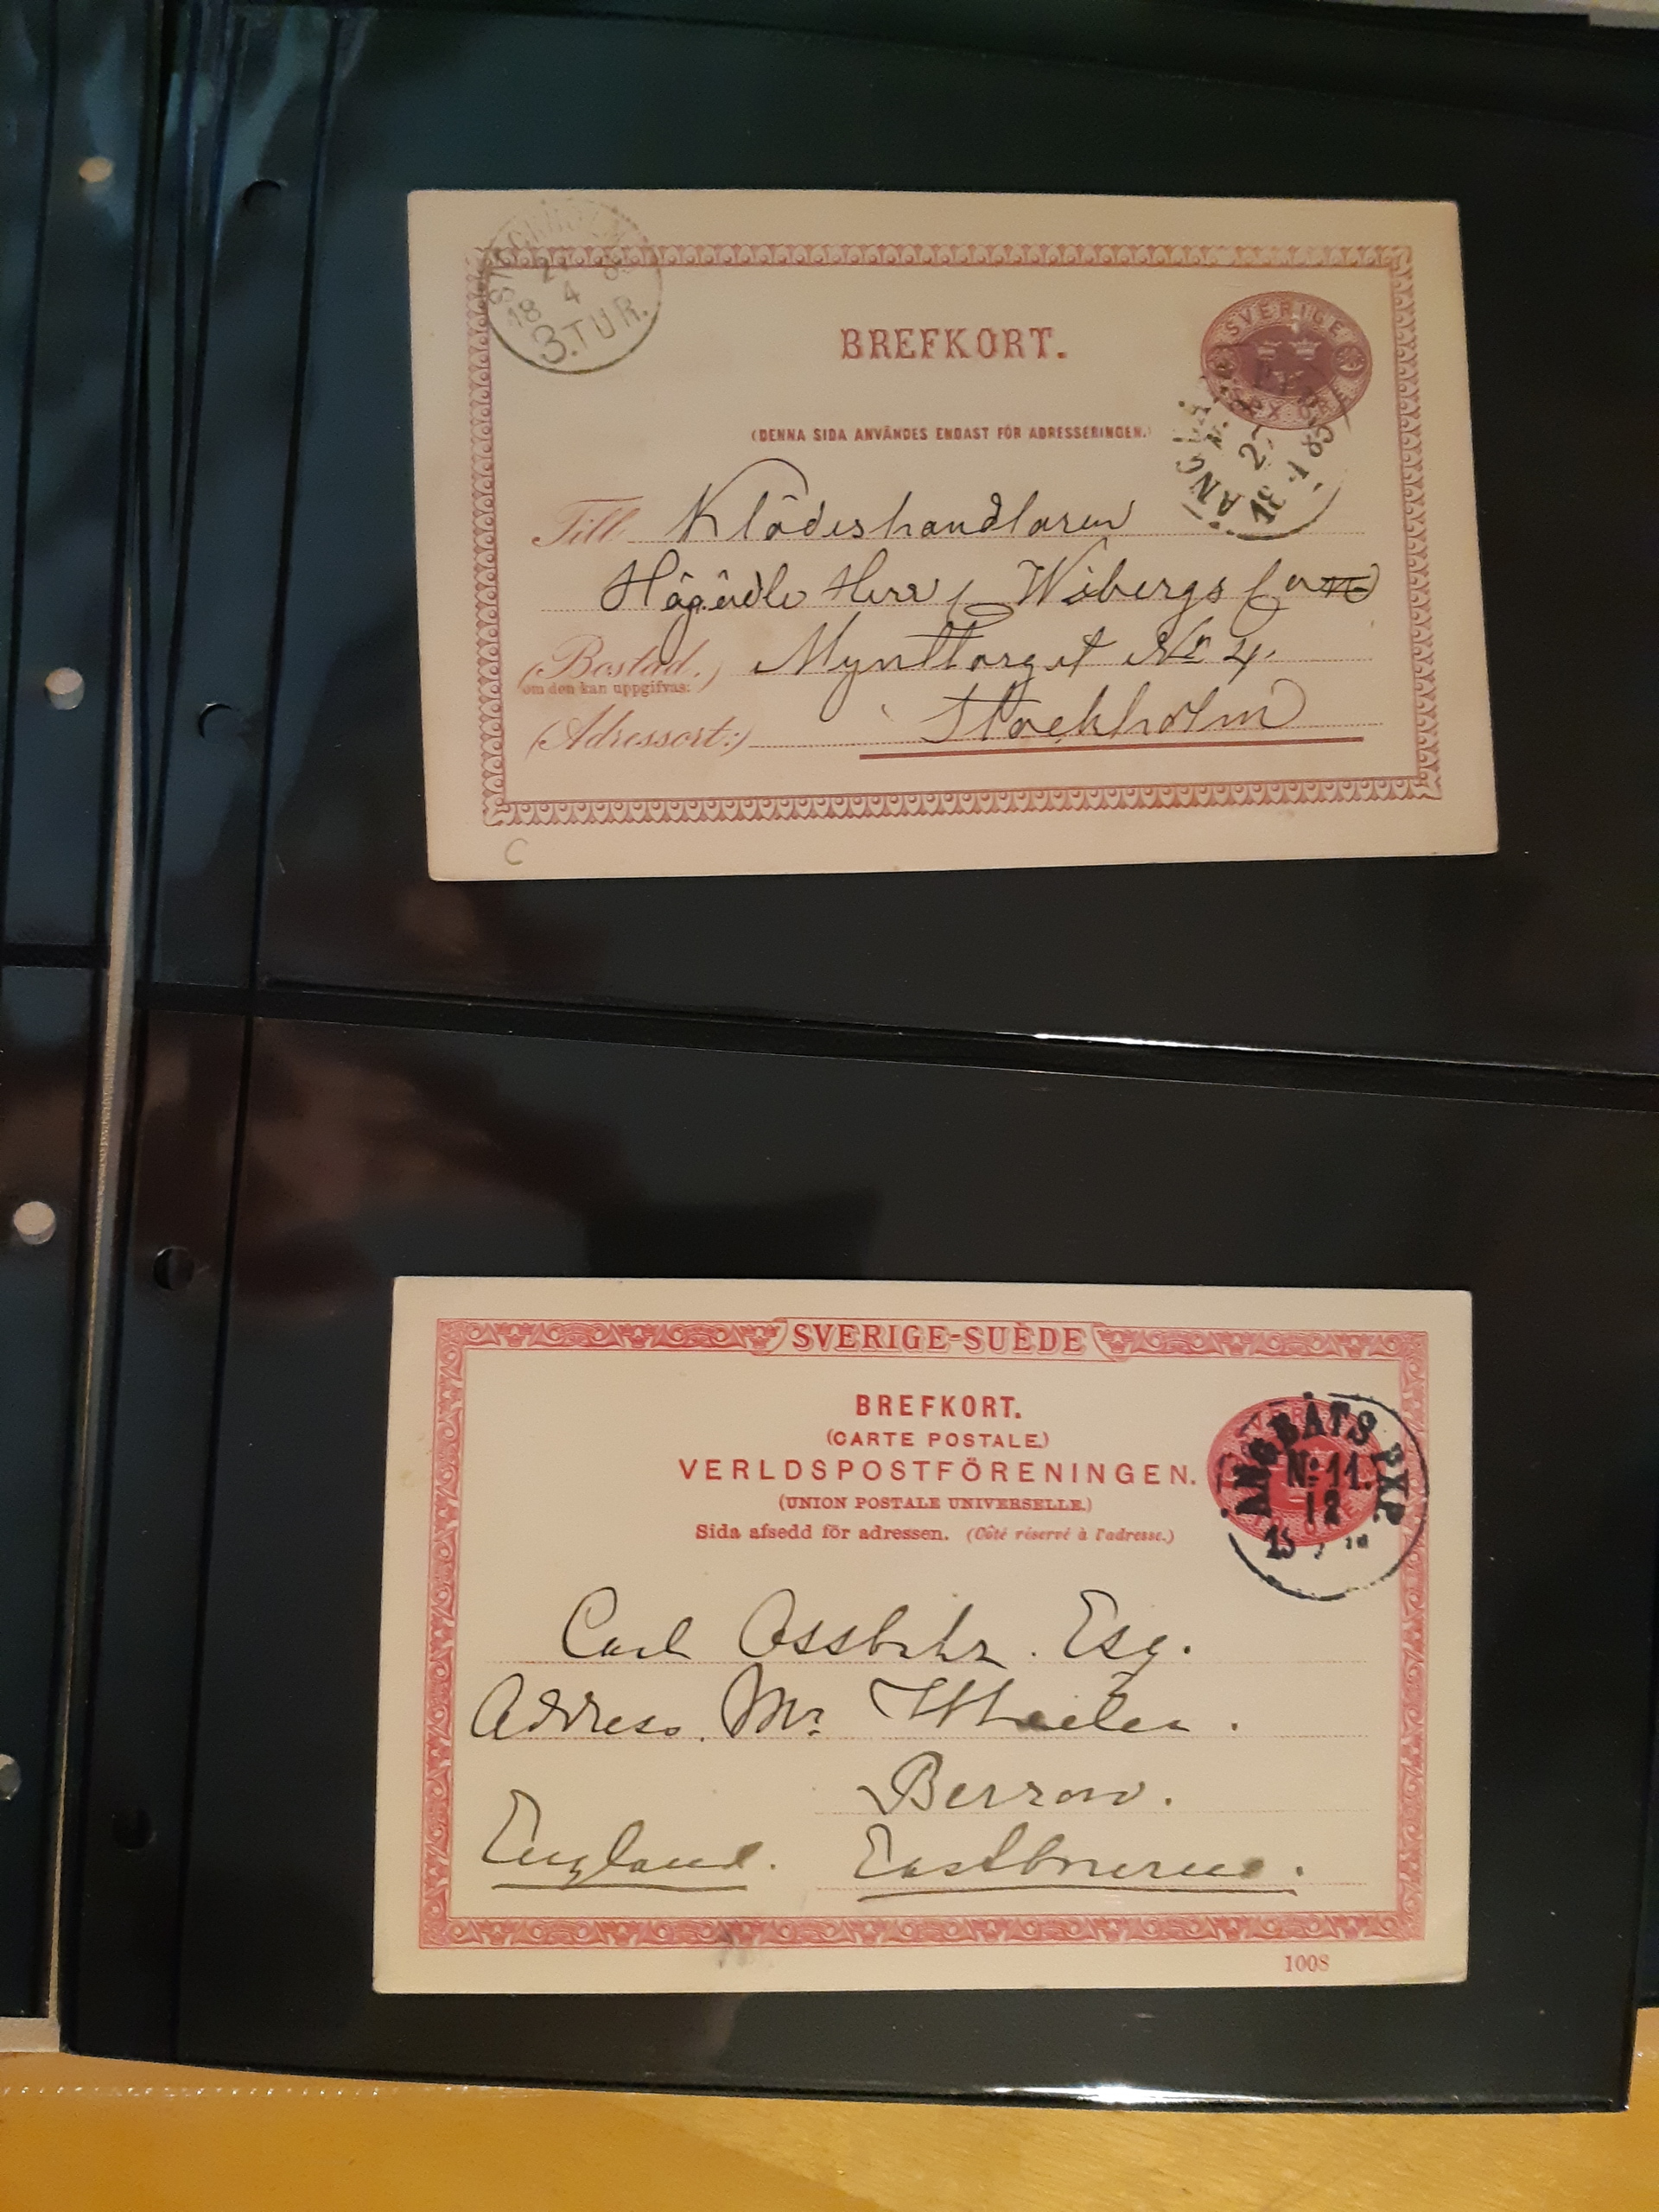 STOCKHOLM
27
18 4 85
3.TUR.
SVERIGE
SEX ÖRE
BREFKORT.
(DENNA SIDA ANVÄNDES ENDAST FÖR ADRESSERINGEN.)
ÅNGBÅ
27
18 4 85
Till Klädeshandlaren
Högädle Herr Wibergs
(Bostad.) Mynttorget No 4.
om den kan uppgifvas:
(Adressort:) Stockholm
C
SVERIGE-SUÈDE
BREFKORT.
(CARTE POSTALE.)
VERLDSPOSTFÖRENINGEN.
(UNION POSTALE UNIVERSELLE.)
Sida afsedd för adressen. (Côté réservé à l'adresse.)
ÅNGBÅTS PXP.
No 11.
12
Carl Ossbahr. Esq.
Address. Mr Wheeler.
Berrow.
England. Eastbourne.
1008